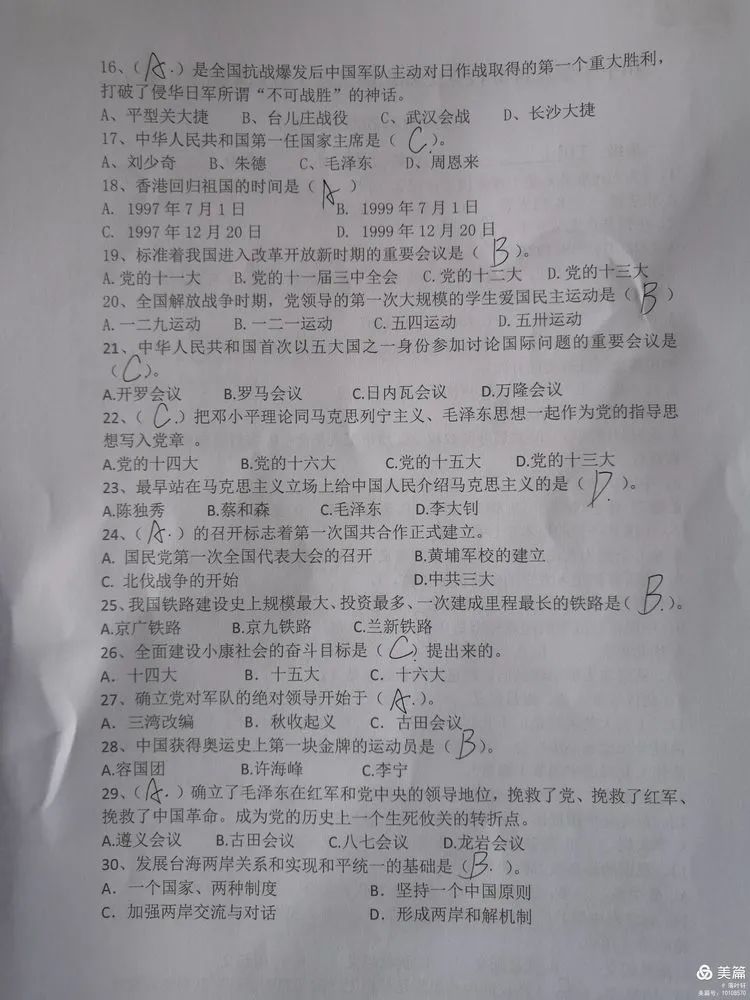 16、（A.）是全国抗战爆发后中国军队主动对日作战取得的第一个重大胜利，
打破了侵华日军所谓“不可战胜”的神话。
A、平型关大捷 B、台儿庄战役 C、武汉会战 D、长沙大捷
17、中华人民共和国第一任国家主席是（C.）。
A、刘少奇 B、朱德 C、毛泽东 D、周恩来
18、香港回归祖国的时间是（A）
A. 1997年7月1日 B. 1999年7月1日
C. 1997年12月20日 D. 1999年12月20日
19、标准着我国进入改革开放新时期的重要会议是（B）。
A.党的十一大 B.党的十一届三中全会 C.党的十二大 D.党的十三大
20、全国解放战争时期，党领导的第一次大规模的学生爱国民主运动是（B）
A.一二九运动 B.一二一运动 C.五四运动 D.五卅运动
21、中华人民共和国首次以五大国之一身份参加讨论国际问题的重要会议是
（C）。
A.开罗会议 B.罗马会议 C.日内瓦会议 D.万隆会议
22、（C.）把邓小平理论同马克思列宁主义、毛泽东思想一起作为党的指导思
想写入党章 。
A.党的十四大 B.党的十六大 C.党的十五大 D.党的十三大
23、最早站在马克思主义立场上给中国人民介绍马克思主义的是（D.）。
A.陈独秀 B.蔡和森 C.毛泽东 D.李大钊
24、（A.）的召开标志着第一次国共合作正式建立。
A. 国民党第一次全国代表大会的召开 B.黄埔军校的建立
C. 北伐战争的开始 D.中共三大
25、我国铁路建设史上规模最大、投资最多、一次建成里程最长的铁路是（B.）。
A.京广铁路 B.京九铁路 C.兰新铁路
26、全面建设小康社会的奋斗目标是（C）提出来的。
A. 十四大 B. 十五大 C. 十六大
27、确立党对军队的绝对领导开始于（A.）。
A. 三湾改编 B. 秋收起义 C. 古田会议
28、中国获得奥运史上第一块金牌的运动员是（B）。
A.容国团 B.许海峰 C.李宁
29、（A.）确立了毛泽东在红军和党中央的领导地位，挽救了党、挽救了红军、
挽救了中国革命。成为党的历史上一个生死攸关的转折点。
A.遵义会议 B.古田会议 C.八七会议 D.龙岩会议
30、发展台海两岸关系和实现和平统一的基础是（B.）。
A. 一个国家、两种制度 B. 坚持一个中国原则
C. 加强两岸交流与对话 D. 形成两岸和解机制
美篇
美篇号：10108570